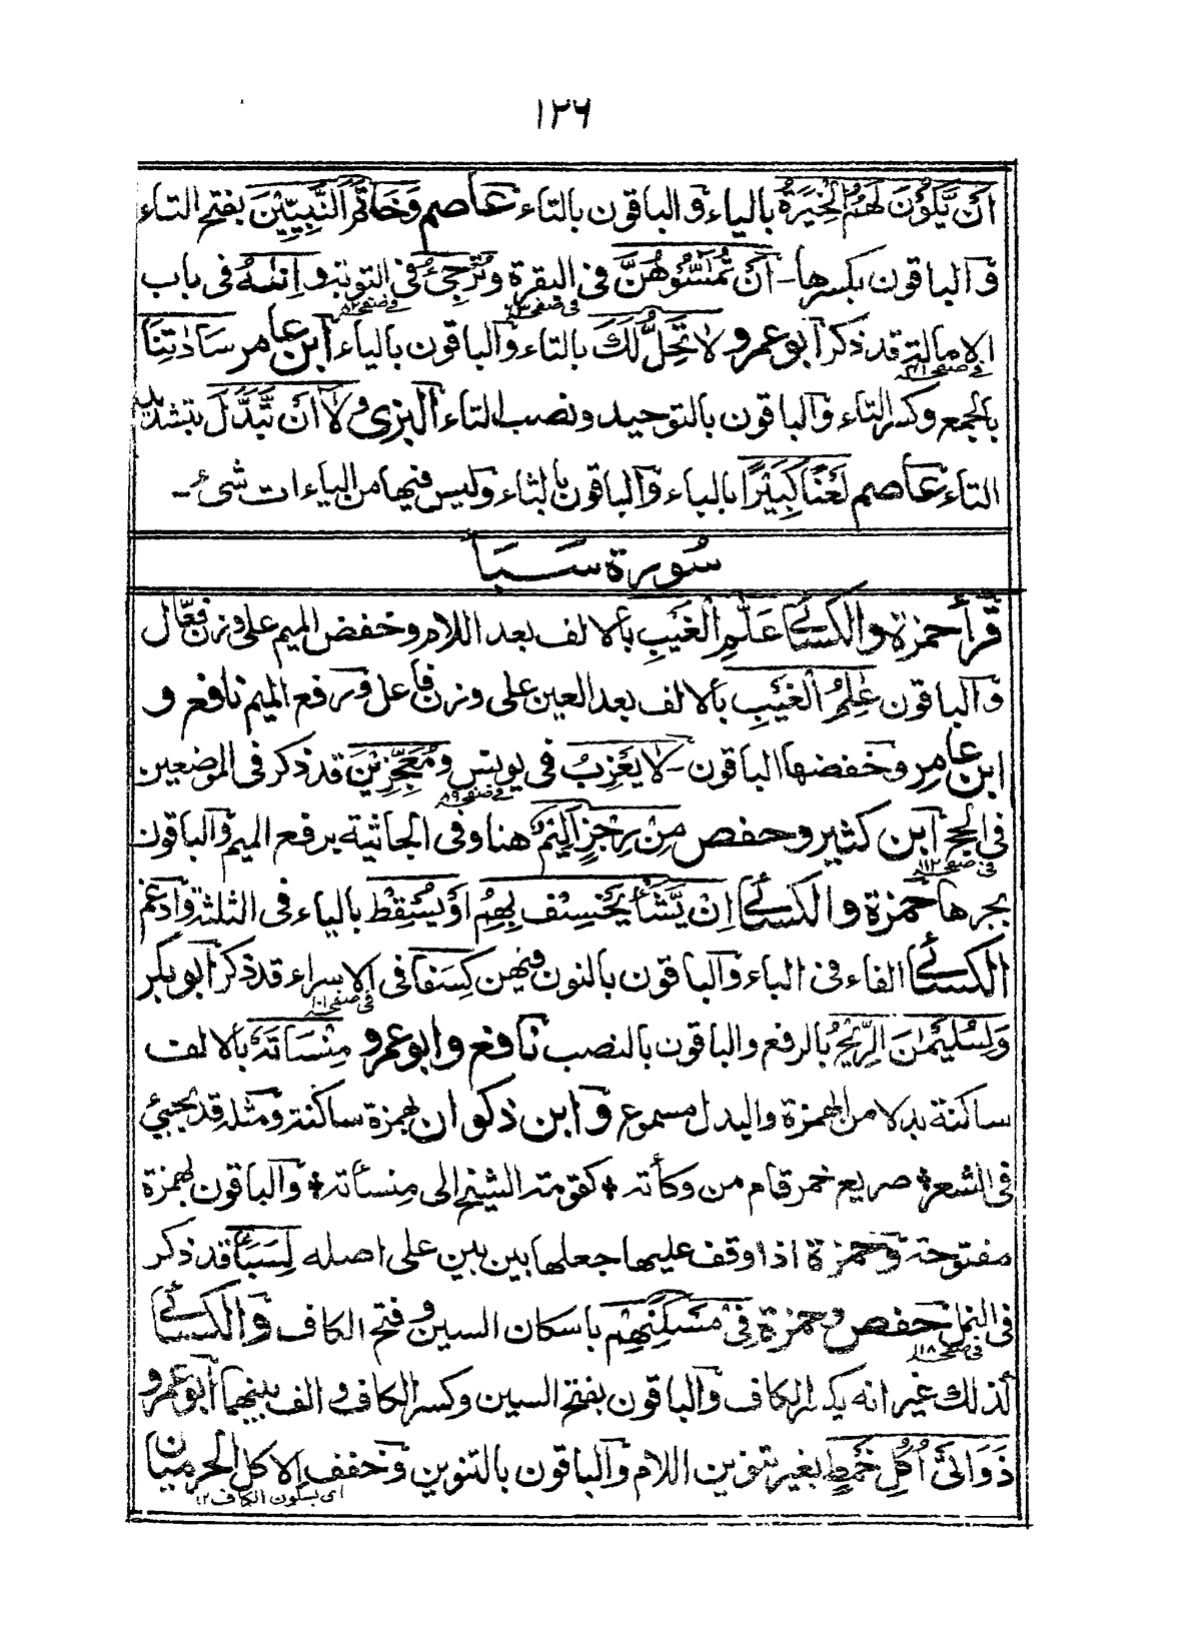 ١٢٦
اَنْ يَّكُوْنَ لَهُمُ الْخِيَرَةُ بالياء والباقون بالتاء عاصم وَخَاتَمَ النَّبِيّيْنَ بفتح التاء
والباقون بكسرها۔ اَنْ تَمَسُّوْهُنَّ فى البقرة وتُرْجِئُ فى التوبة و اِنٰهُ فى باب
فى صفحه فى صفحه
الامالة قد ذكر ابو عمرو لَا تَحِلُّ لَكَ بالتاء والباقون بالياء ابن عامر سَادٰتِنَا
فى صفحه
بالجمع وكسر التاء والباقون بالتوحيد ونصب التاء البزى وَلَا اَنْ تَّبَدَّلَ بتشديد
التاء عاصم لَعْنًا كَبِيْرًا بالباء والباقون بالثاء وليس فيها من الياءات شىء۔
سُورة سَبَأ
قرأ حمزة والكسائى عَلّٰمِ الْغَيْبِ بألالف بعد اللام وخفض الميم على وزن فعّال
والباقون عٰلِمُ الْغَيْبِ بألالف بعد العين على وزن فاعل ورفع الميم نافع و
ابن عامر وخفضها الباقون۔ لَا يَعْزِبُ فى يونس ومُعَجِّزِيْنَ قد ذكر فى الموضعين
فى صفحه ٨٩
فى الحج ابن كثير وحفص مِنْ رِجْزٍ اَلِيْمٌ هنا وفى الجاثية برفع الميم والباقون
فى صفحه ١١٢
بجرها حمزة والكسائى اِنْ يَّشَأْ يَخْسِفْ بِهِمُ اَوْ يُسْقِطْ بالياء فى الثلثة وادغم
الكسائى الفاء فى الباء والباقون بالنون فيهن كِسَفًا فى الاسراء قد ذكر ابو بكر
فى صفحه
وَلِسُلَيْمٰنَ الرِّيْحُ بالرفع والباقون بالنصب نافع وابو عمرو مِنْسَاتَهٗ بألالف
ساكنة بدلا من الهمزة والبدل مسموع وابن ذكوان بهمزة ساكنة ومثله قد يجيئ
فى الشعر * صريع خمر قام من وكأته * كقومة الشيخ الى مِنسأته * والباقون بهمزة
مفتوحة وحمزة اذا وقف عليها جعلها بين بين على اصله لِسَبَأٍ قد ذكر
فى النمل حفص وحمزة فِىْ مَسْكَنِهِمْ باسكان السين وفتح الكاف والكسائى
فى صفحه ١١٨
كذلك غير انه يكسر الكاف والباقون بفتح السين وكسر الكاف و الف بينهما ابو عمرو
ذَوَاتَىْ اُكُلِ خَمْطٍ بغير تنوين اللام والباقون بالتنوين وخفف الاكل الحرميان
اى بسكون الكاف ١٢